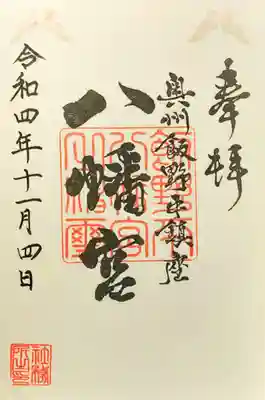 奉拝
奥州飯野平鎮座
八幡宮
令和四年十一月四日